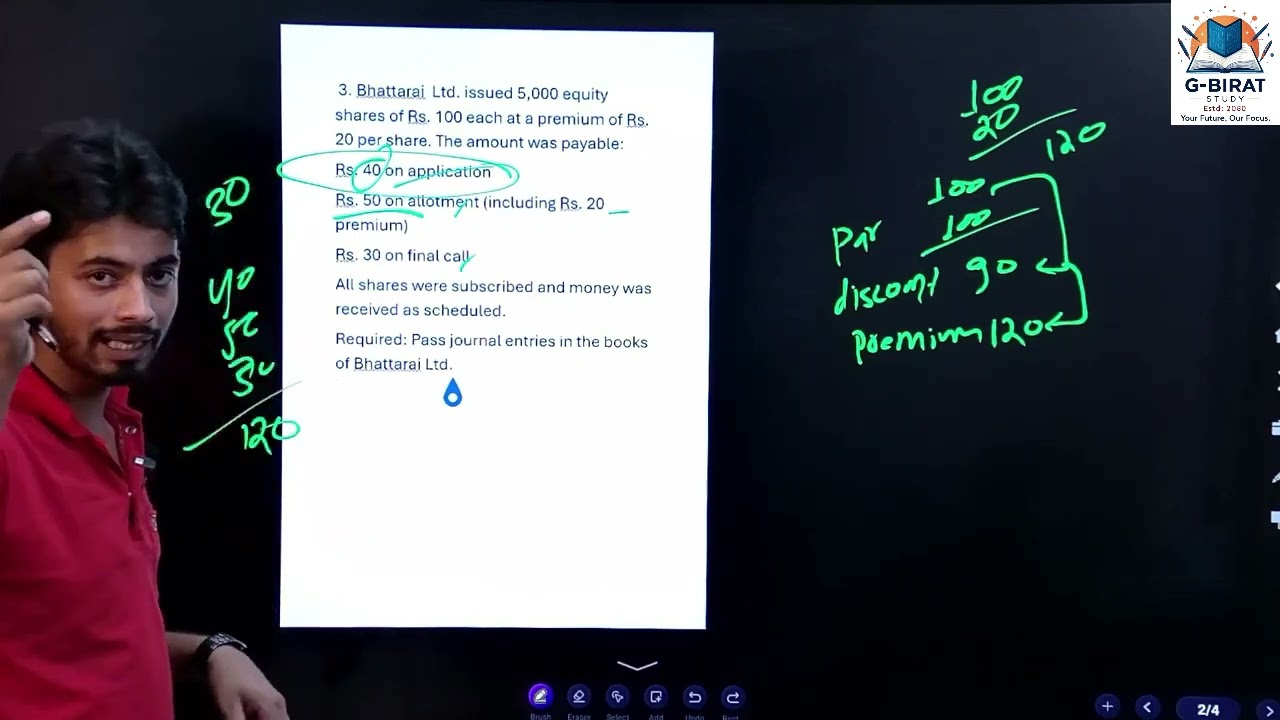 3. Bhattarai Ltd. issued 5,000 equity
shares of Rs. 100 each at a premium of Rs.
20 per share. The amount was payable:
Rs. 40 on application
Rs. 50 on allotment (including Rs. 20
premium)
Rs. 30 on final call
All shares were subscribed and money was
received as scheduled.
Required: Pass journal entries in the books
of Bhattarai Ltd.
30
40
50
30
120
100
20
120
100
Par 100
discount 90
premium 120
G-BIRAT
STUDY
Estd: 2080
Your Future, Our Focus.
Brush Eraser Select Add Undo
2/4